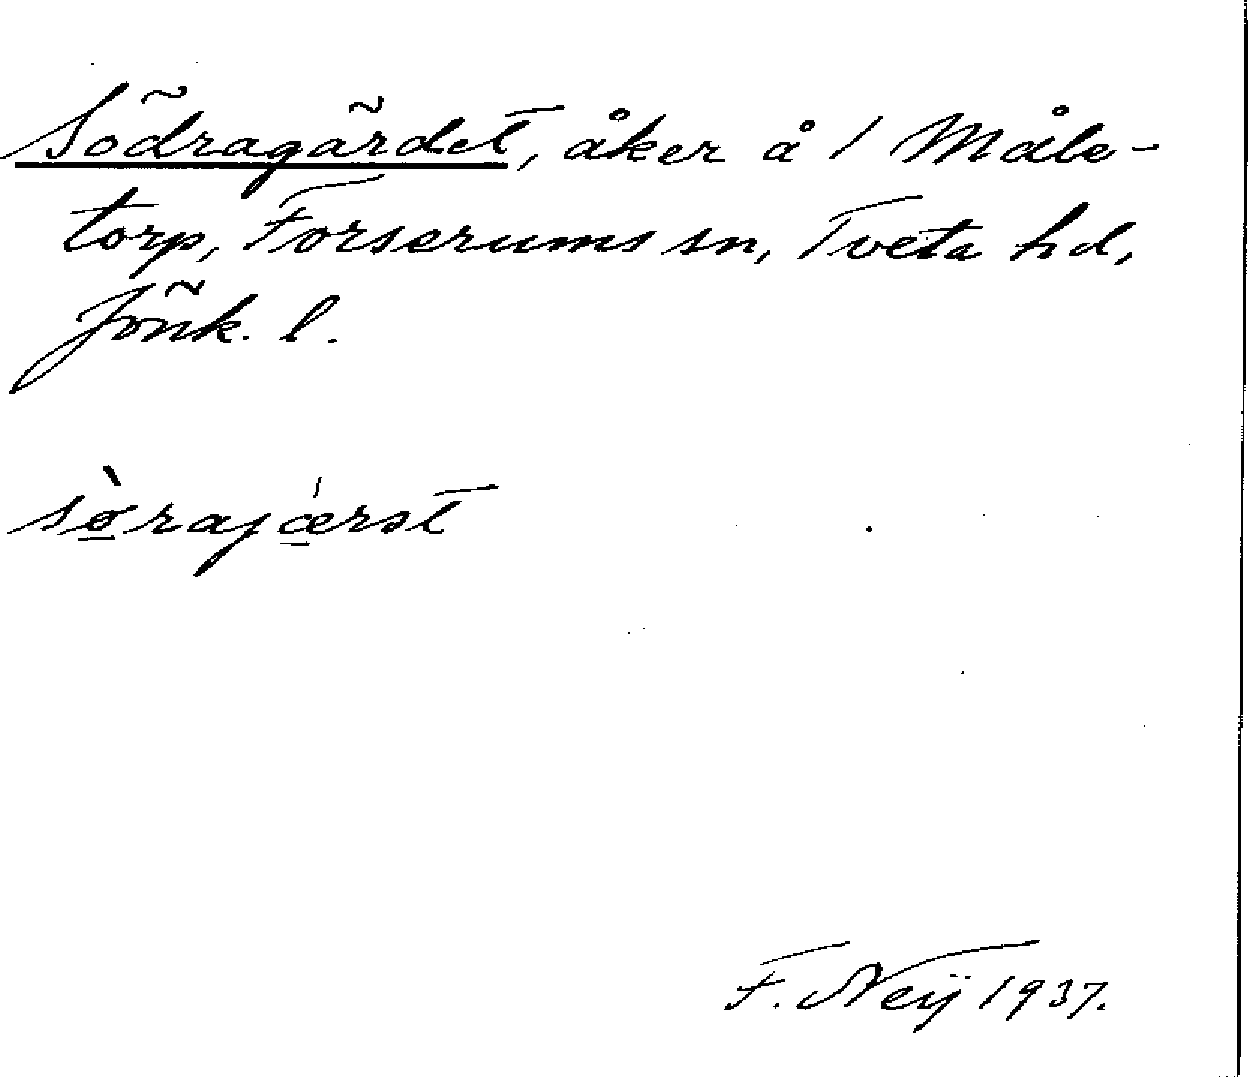 Södragärdet, åker å 1 Måle-
torp, Forserums sn, Tveta hd,
Jönk. l.
sø̀rajæ̍rət
F. Neij 1937.